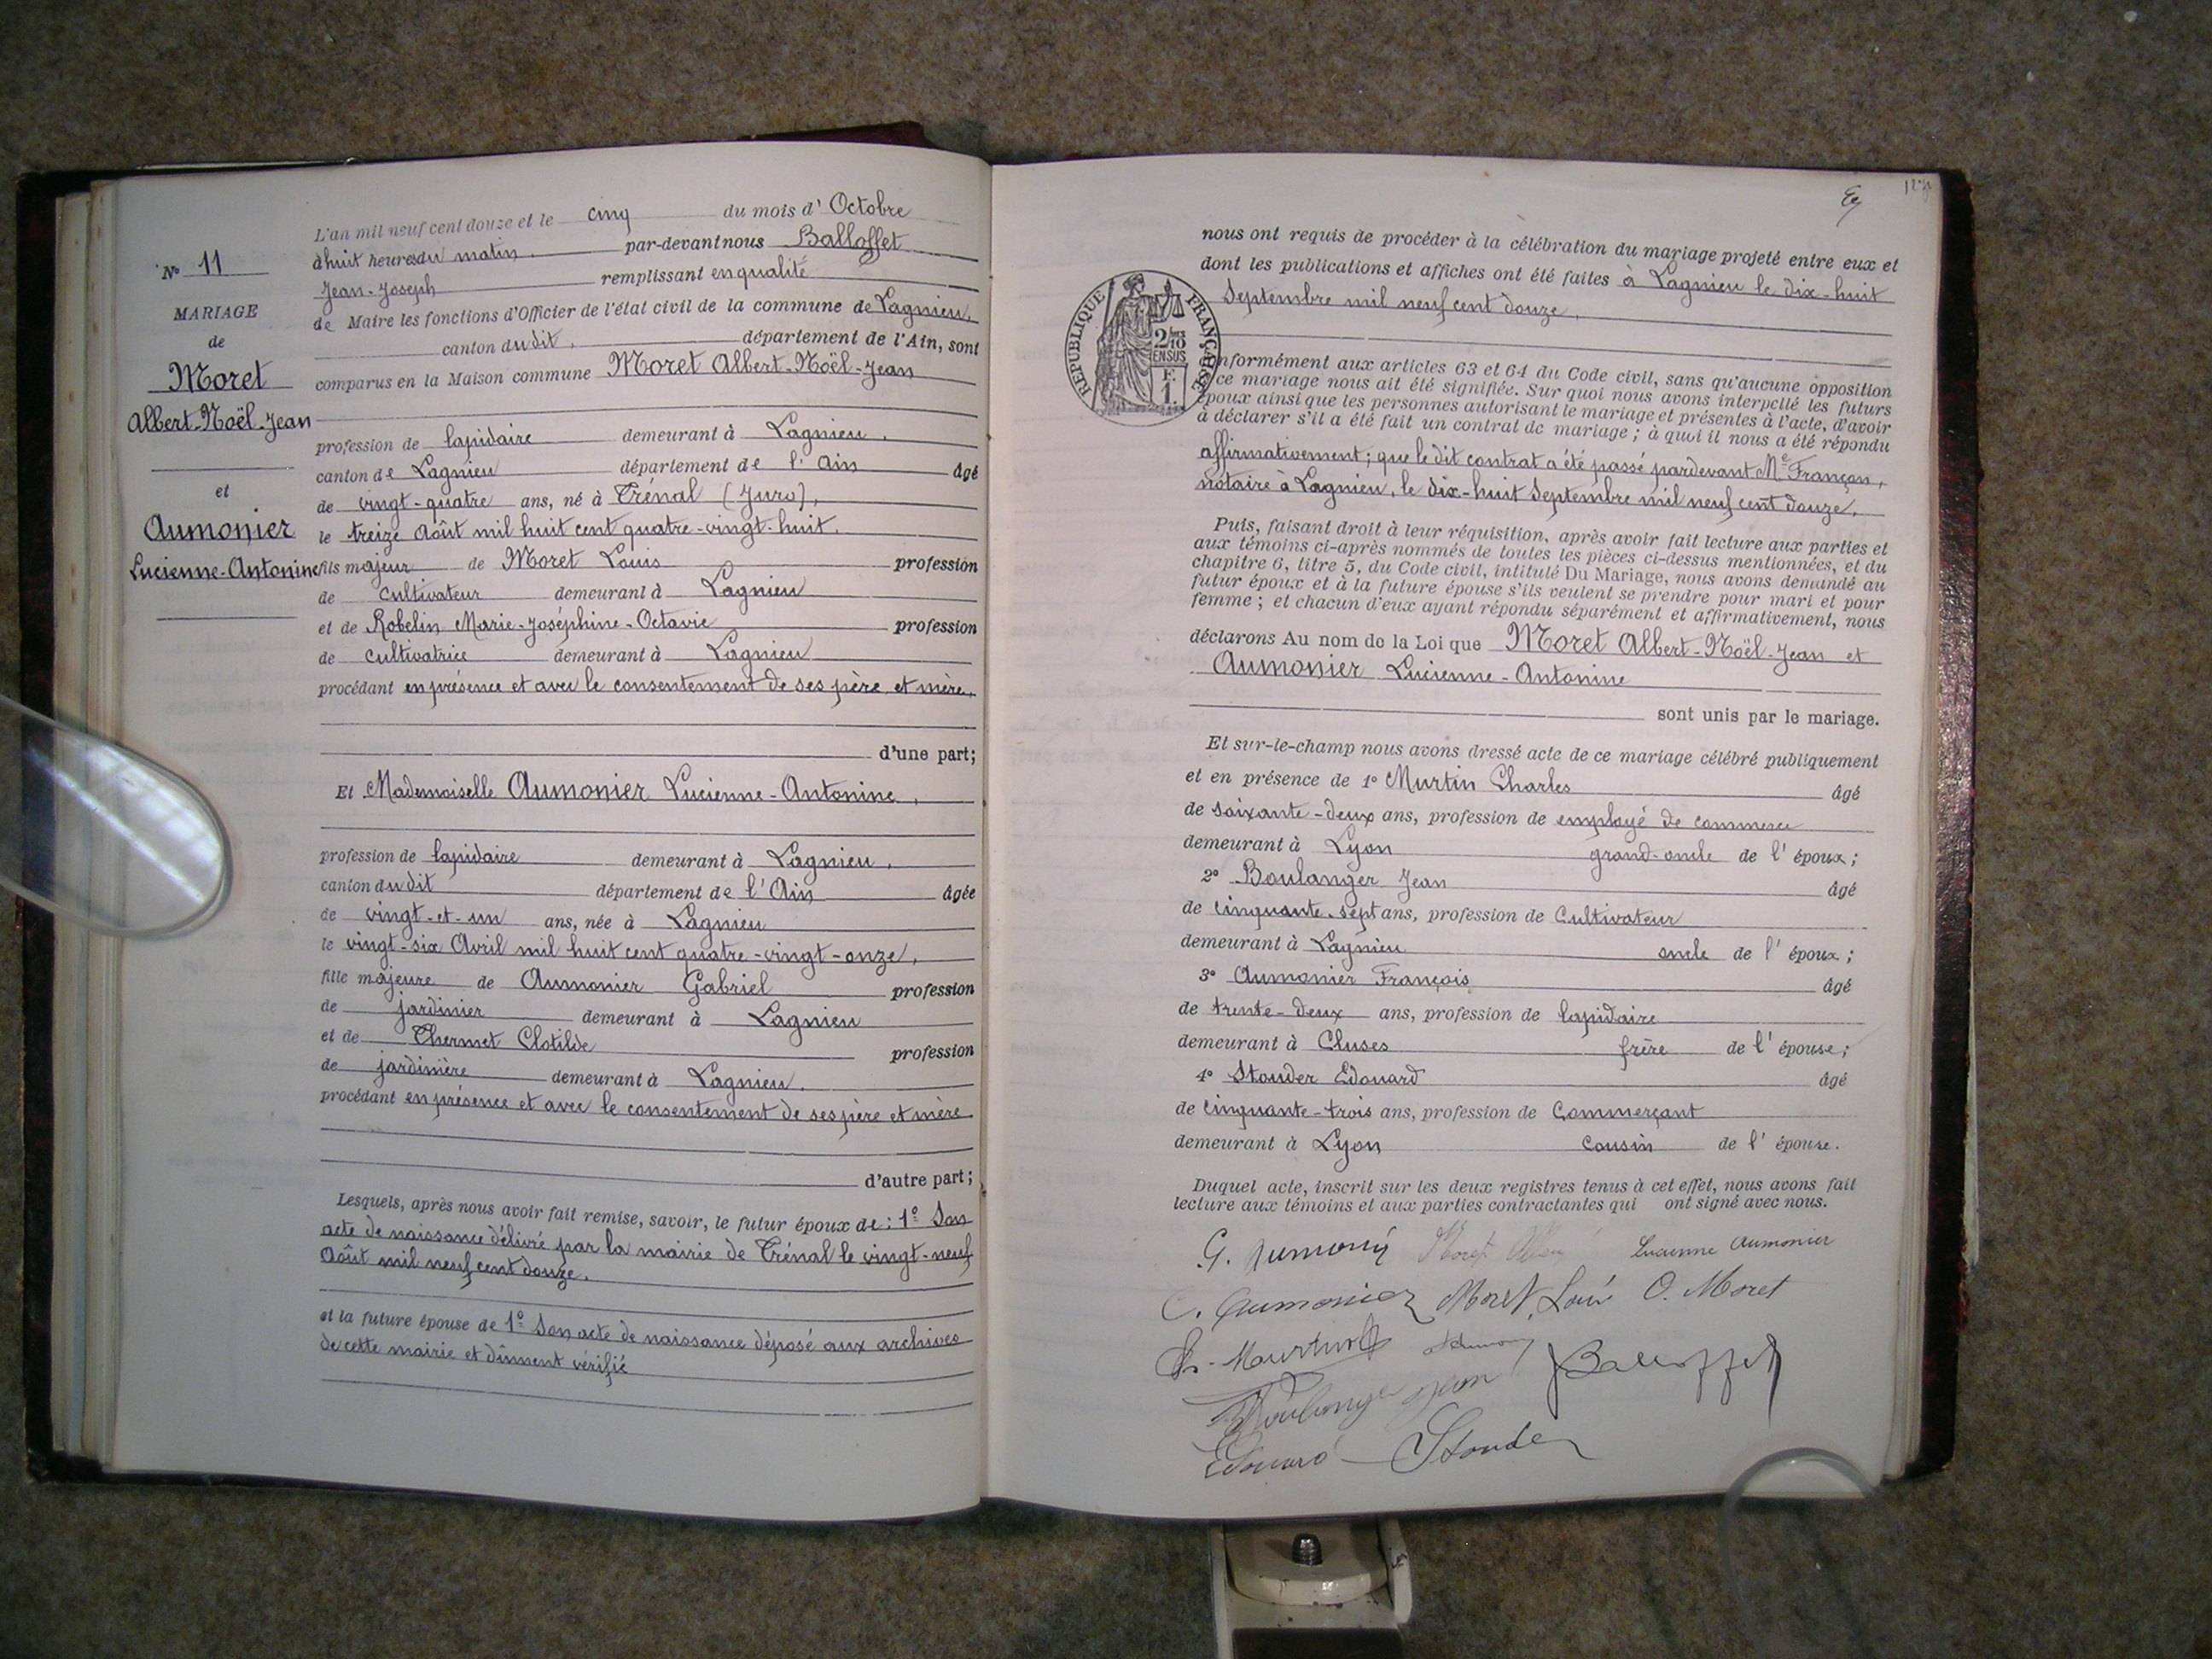 N° 11
MARIAGE
de
Moret
Albert-Noël-Jean
et
Aumonier
Lucienne-Antonine
L'an mil neuf cent douze et le cinq du mois d'Octobre
à huit heures du matin. par-devant nous Balloffet
Jean-Joseph remplissant en qualité
de Maire les fonctions d'Officier de l'état civil de la commune de Lagnieu,
canton dudit, département de l'Ain, sont
comparus en la Maison commune Moret Albert-Noël-Jean
profession de lapidaire demeurant à Lagnieu,
canton de Lagnieu département de l'Ain âgé
de vingt-quatre ans, né à Trénal (Jura),
le treize Août mil huit cent quatre-vingt-huit.
fils majeur de Moret Louis profession
de cultivateur demeurant à Lagnieu
et de Robelin Marie-Joséphine-Octavie profession
de cultivatrice demeurant à Lagnieu
procédant en présence et avec le consentement de ses père et mère,
d'une part;
Et Mademoiselle Aumonier Lucienne-Antonine,
profession de lapidaire demeurant à Lagnieu,
canton dudit département de l'Ain âgée
de vingt-et-un ans, née à Lagnieu
le vingt-six Avril mil huit cent quatre-vingt-onze,
fille majeure de Aumonier Gabriel profession
de jardinier demeurant à Lagnieu
et de Thermet Clotilde profession
de jardinière demeurant à Lagnieu.
procédant en présence et avec le consentement de ses père et mère
d'autre part;
Lesquels, après nous avoir fait remise, savoir, le futur époux de: 1° Son
acte de naissance délivré par la mairie de Trénal le vingt-neuf
Août mil neuf cent douze.
et la future épouse de 1° Son acte de naissance déposé aux archives
de cette mairie et dûment vérifié
nous ont requis de procéder à la célébration du mariage projeté entre eux et
dont les publications et affiches ont été faites à Lagnieu le dix-huit
Septembre mil neuf cent douze,
RÉPUBLIQUE FRANÇAISE
2/10
EN SUS
F.
1.
conformément aux articles 63 et 64 du Code civil, sans qu'aucune opposition
ce mariage nous ait été signifiée. Sur quoi nous avons interpellé les futurs
époux ainsi que les personnes autorisant le mariage et présentes à l'acte, d'avoir
à déclarer s'il a été fait un contrat de mariage; à quoi il nous a été répondu
affirmativement; que le dit contrat a été passé pardevant Me Françon,
notaire à Lagnieu, le dix-huit Septembre mil neuf cent douze.
Puis, faisant droit à leur réquisition, après avoir fait lecture aux parties et
aux témoins ci-après nommés de toutes les pièces ci-dessus mentionnées, et du
chapitre 6, titre 5, du Code civil, intitulé Du Mariage, nous avons demandé au
futur époux et à la future épouse s'ils veulent se prendre pour mari et pour
femme; et chacun d'eux ayant répondu séparément et affirmativement, nous
déclarons Au nom de la Loi que Moret Albert-Noël-Jean et
Aumonier Lucienne-Antonine
sont unis par le mariage.
Et sur-le-champ nous avons dressé acte de ce mariage célébré publiquement
et en présence de 1° Murtin Charles âgé
de soixante-deux ans, profession de employé de commerce
demeurant à Lyon grand-oncle de l'époux;
2° Boulanger Jean âgé
de cinquante-sept ans, profession de Cultivateur
demeurant à Lagnieu oncle de l'époux;
3° Aumonier François âgé
de trente-deux ans, profession de lapidaire
demeurant à Cluses frère de l'épouse;
4° Stouder Edouard âgé
de cinquante-trois ans, profession de Commerçant
demeurant à Lyon cousin de l'épouse.
Duquel acte, inscrit sur les deux registres tenus à cet effet, nous avons fait
lecture aux témoins et aux parties contractantes qui ont signé avec nous.
G. Aumonier Moret Lucienne Aumonier
C. Aumonier Moret Louis O. Moret
Ch. Murtin
Boulanger Jean Balloffet
Edouard Stouder